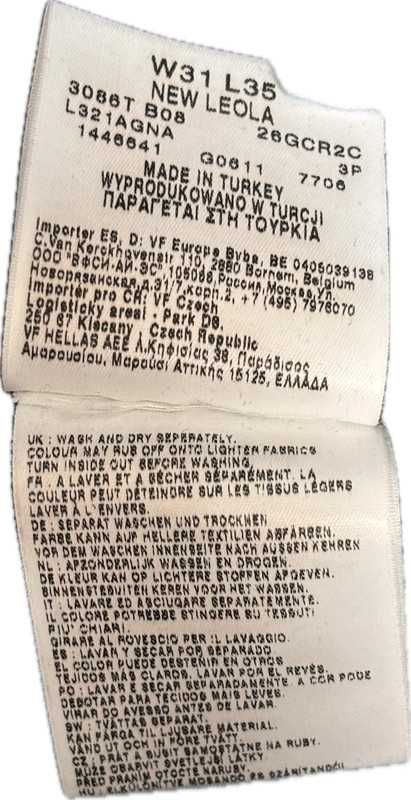 W31 L35
NEW LEOLA
3086T B08 26GCR2C
L321AGNA 3P
1446641 G0611 7706
MADE IN TURKEY
WYPRODUKOWANO W TURCJI
ΠΑΡΑΓΕΤΑΙ ΣΤΗ ΤΟΥΡΚΙΑ
Importer ES, D: VF Europe Bvba, BE 0405039138
C.Van Kerckhovenstr 110, 2880 Bornem, Belgium
ООО "ВФСИ-АЙ-ЭС", 105066, Россия, Москва, Ул.
Новорязанская, д.31/7, корп.2, +7 (495) 7976070
Importer pro CR: VF Czech
Logisticky areal - Park D8,
250 67 Klecany, Czech Republic
VF HELLAS AEE Λ.Κηφισίας 38, Παράδισος
Αμαρουσίου, Μαρούσι Αττικής 15125, ΕΛΛΑΔΑ
UK : WASH AND DRY SEPERATELY.
COLOUR MAY RUB OFF ONTO LIGHTER FABRICS
TURN INSIDE OUT BEFORE WASHING.
FR : A LAVER ET A SÉCHER SÉPARÉMENT. LA
COULEUR PEUT DÉTEINDRE SUR LES TISSUS LÉGERS
LAVER À L'ENVERS.
DE : SEPARAT WASCHEN UND TROCKNEN
FARBE KANN AUF HELLERE TEXTILIEN ABFÄRBEN.
VOR DEM WASCHEN INNENSEITE NACH AUSSEN KEHREN
NL : AFZONDERLIJK WASSEN EN DROGEN.
DE KLEUR KAN OP LICHTERE STOFFEN AFGEVEN.
BINNENSTEBUITEN KEREN VOOR HET WASSEN.
IT : LAVARE ED ASCIUGARE SEPARATEMENTE.
IL COLORE POTREBBE STINGERE SU TESSUTI
PIU' CHIARI.
GIRARE AL ROVESCIO PER IL LAVAGGIO.
ES : LAVAR Y SECAR POR SEPARADO
EL COLOR PUEDE DESTENIR EN OTROS
TEJIDOS MAS CLAROS. LAVAR POR EL REVÉS.
PO : LAVAR E SECAR SEPARADAMENTE. A COR PODE
DEBOTAR PARA TECIDOS MAIS LEVES.
VIRAR DO AVESSO ANTES DE LAVAR.
SW : TVÄTTAS SEPARAT.
KAN FÄRGA TILL LJUSARE MATERIAL.
VÄND UT OCH IN FÖRE TVÄTT.
CZ : PRÁT A SUŠIT SAMOSTATNĚ NA RUBY.
MŮŽE OBARVIT SVĚTLEJŠÍ LÁTKY.
PŘED PRANÍM OTOČTE NARUBY.
HU : ELKÜLÖNÍTVE MOSANDÓ ÉS SZÁRÍTANDÓ!